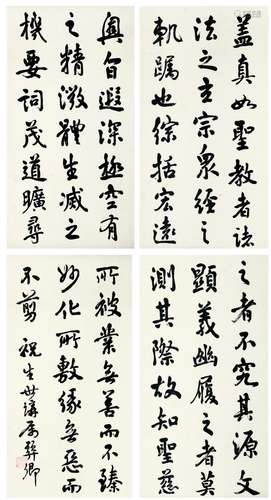 蓋真如聖教者諸
法之玄宗眾經之
軌躅也綜括宏遠
奧旨遐深極空有
之精微體生滅之
機要詞茂道曠尋
之者不究其源文
顯義幽履之者莫
測其際故知聖慈
所被業無善而不臻
妙化所敷緣無惡而
不剪 祝生世講属